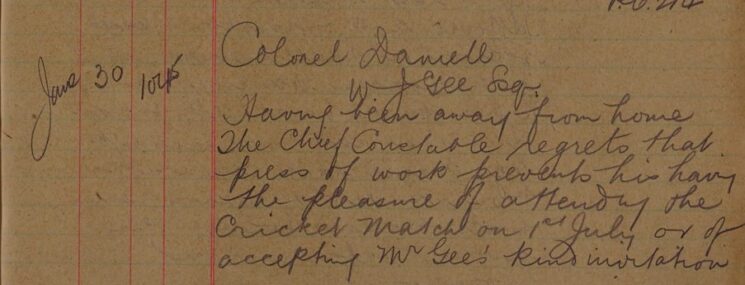 P.C. 214
Colonel Daniell
June 30 1045
W J Gee Esq.
Having been away from home
The Chief Constable regrets that
press of work prevents his having
the pleasure of attending the
Cricket Match on 1st July or of
accepting Mr Gee's kind invitation